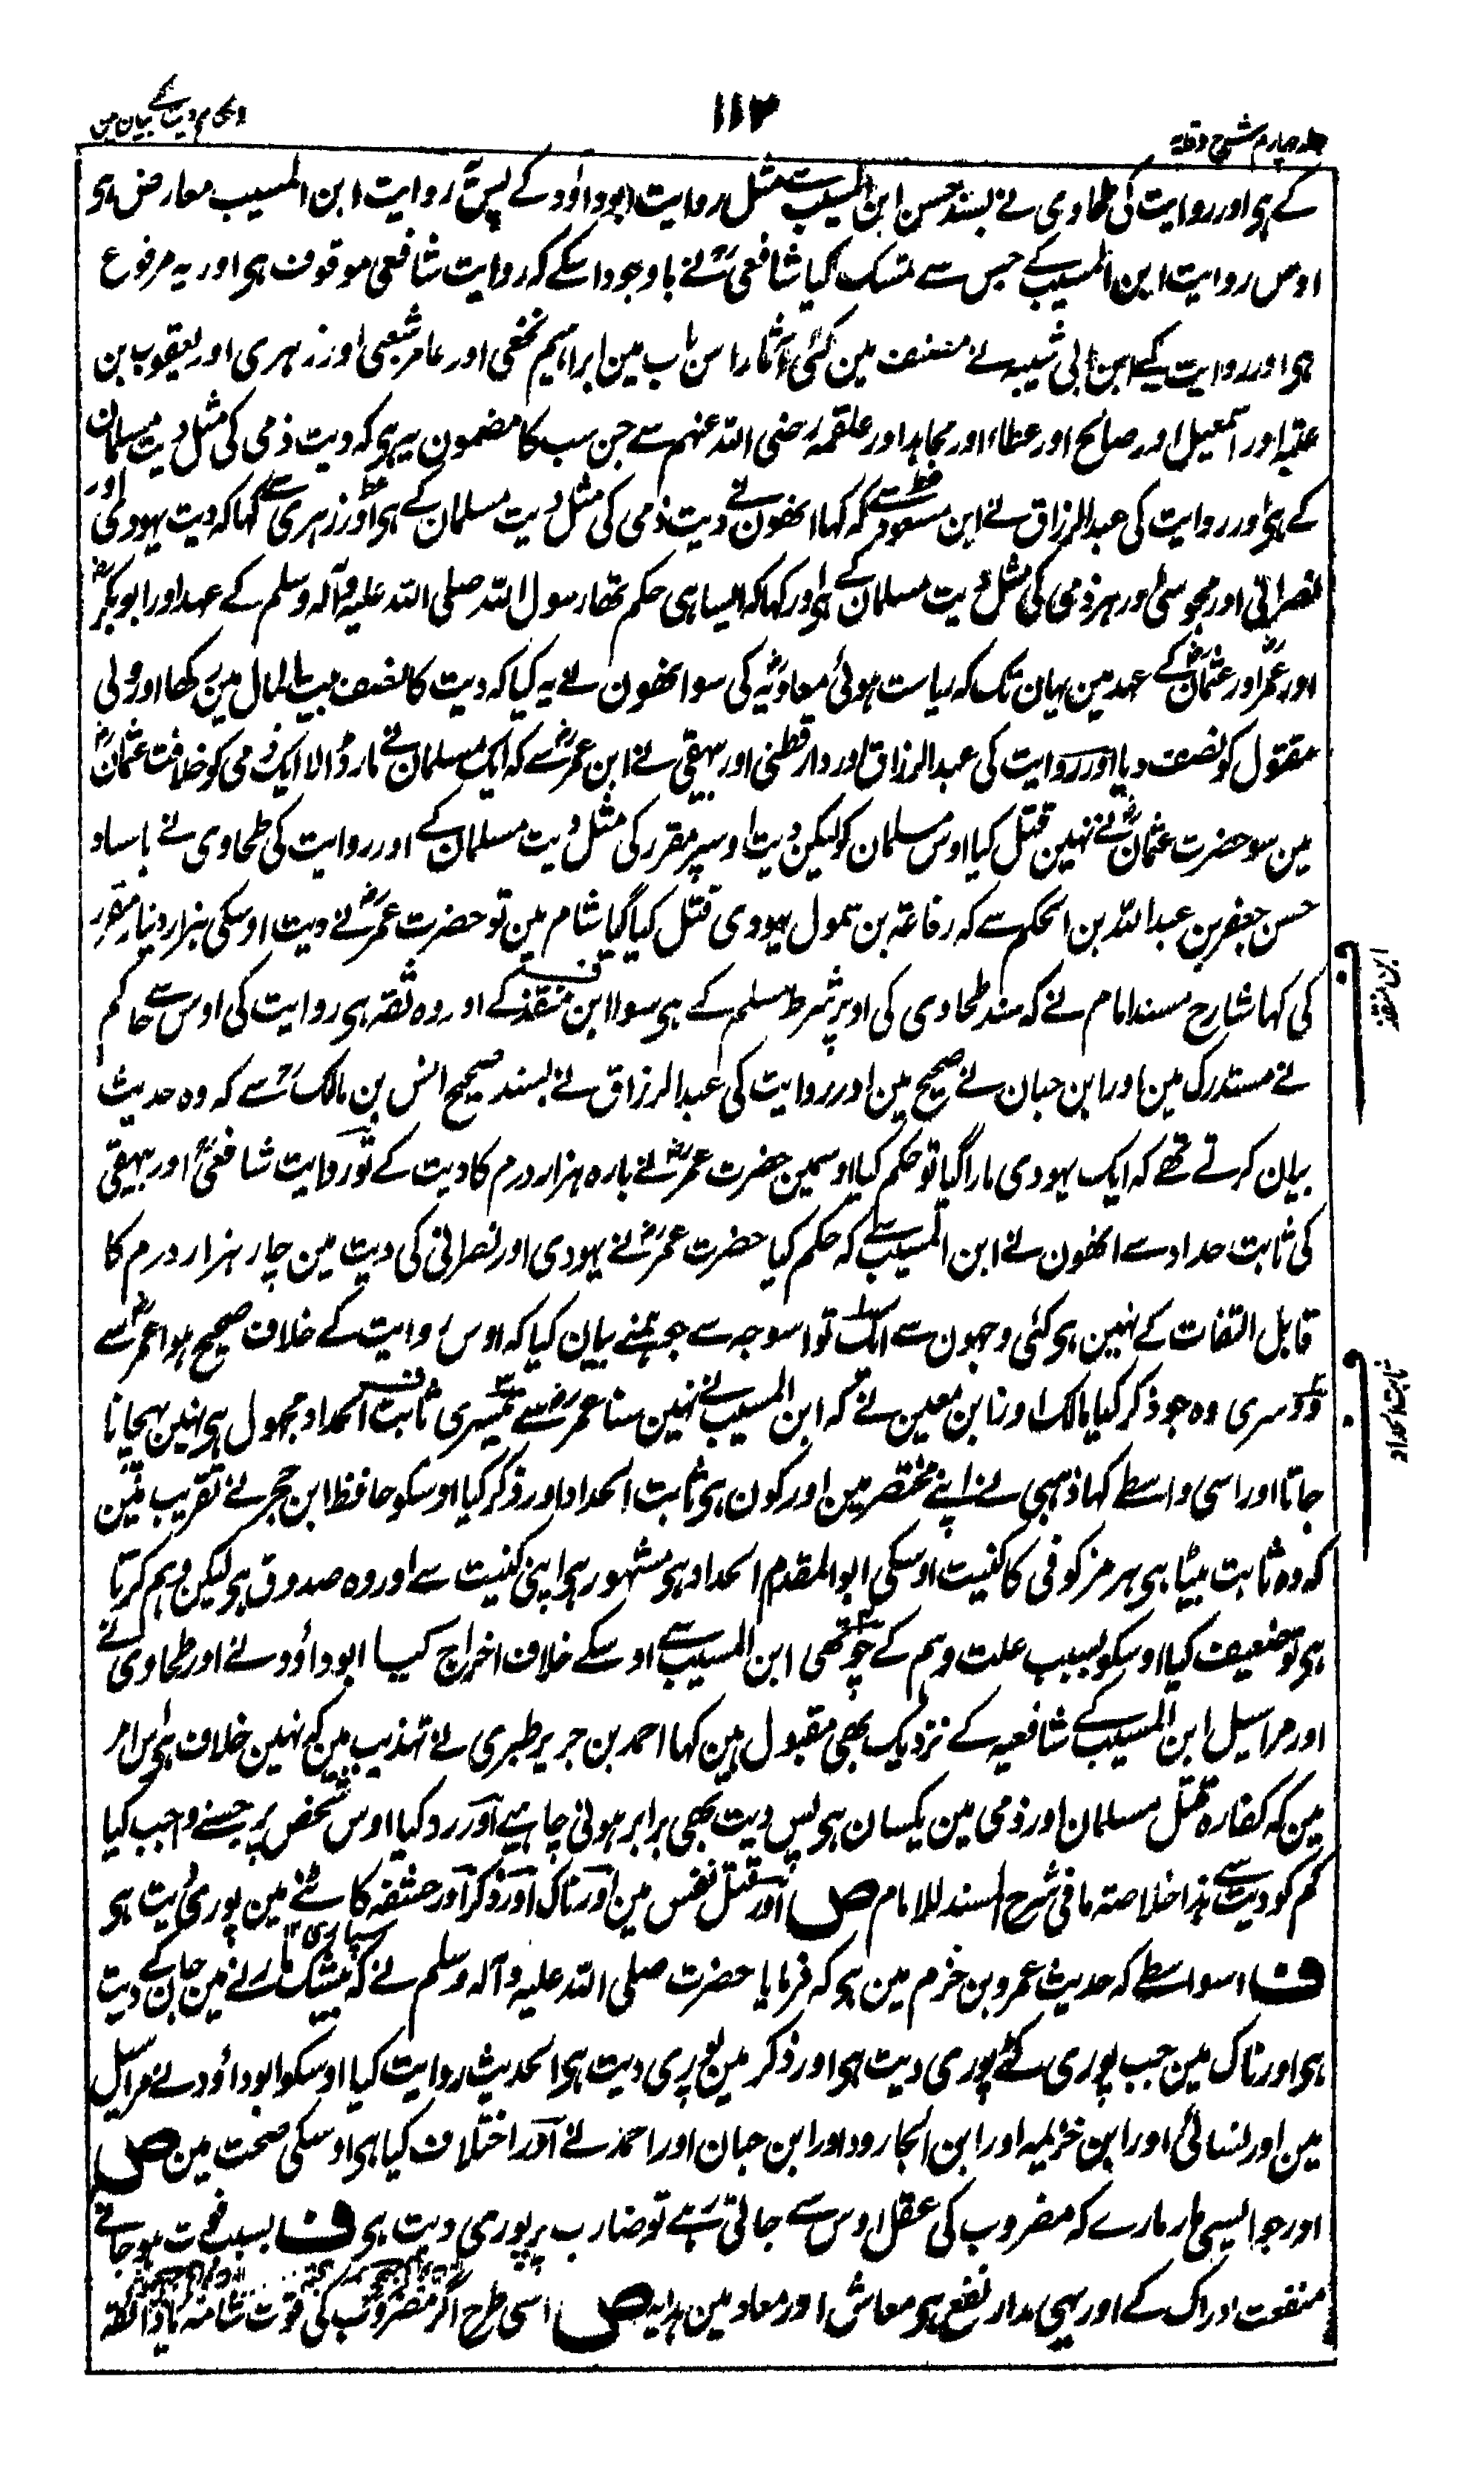 جلد چہارم شرح وقایہ
۱۱۲
احکام دیت کے بیان مین
کے ہی اور روایت کی طحاوی نے بسند حسن ابن المسیب سے مثل روایت ابوداؤد کے پس روایت ابن المسیب معارض ہی
اوس روایت ابن المسیب کے جس سے تمسک کیا شافعیؒ نے باوجود اسکے کہ روایت شافعی موقوف ہی اور یہ مرفوع
ہی اور روایت کیے ابن ابی شیبہ نے مصنف مین کئی آثار اس باب مین ابراہیم نخعی اور عامر شعبی اور زہری اور یعقوب بن
عتبہ اور اسمعیل اور صالح اور عطاء اور مجاہد اور علقمہ رضی اللہ عنہم سے جن سب کا مضمون یہ ہی کہ دیت ذمی کی مثل دیت مسلمان
کے ہی اور روایت کی عبدالرزاق نے ابن مسعودؓ سے کہ کہا انھون نے دیت ذمی کی مثل دیت مسلمان کے ہی اور زہری سے کہا کہ دیت یہودی اور
نصرانی اور مجوسی اور ہر ذمی کی مثل دیت مسلمان کے ہی اور کہا کہ ایسا ہی حکم تھا رسول اللہ صلی اللہ علیہ وآلہ وسلم کے عہد اور ابوبکرؓ
اور عمرؓ اور عثمانؓ کے عہد مین یہان تک کہ ریاست ہوئی معاویہؓ کی سو انھون نے یہ کیا کہ دیت کا نصف بیت المال مین رکھا اور ولی
مقتول کو نصف دیا اور روایت کی عبدالرزاق اور دارقطنی اور بیہقی نے ابن عمرؓ سے کہ ایک مسلمان نے مار ڈالا ایک ذمی کو خلافت عثمانؓ
مین سو حضرت عثمانؓ نے نہین قتل کیا اوس مسلمان کو لیکن دیت اوسپر مقرر کی مثل دیت مسلمان کے اور روایت کی طحاوی نے باسناد
حسن جعفر بن عبداللہ بن الحکم سے کہ رفاعۃ بن سمول یہودی قتل کیا گیا شام مین تو حضرت عمرؓ نے دیت اوسکی ہزار دینار مقرر
کی کہا شارح مسند امام نے کہ سند طحاوی کی اوپر شرط مسلم کے ہی سوا ابن منقذ کے اور وہ ثقہ ہی روایت کی اوس سے حاکم
نے مستدرک مین اور ابن حبان نے صحیح مین اور روایت کی عبدالرزاق نے بسند صحیح انس بن مالکؓ سے کہ وہ حدیث
بیان کرتے تھے کہ ایک یہودی مارا گیا تو حکم کیا اوسمین حضرت عمرؓ نے بارہ ہزار درم کا دیت کے تو روایت شافعیؒ اور بیہقی
کی ثابت حداد سے انھون نے ابن المسیب سے کہ حکم کیا حضرت عمرؓ نے یہودی اور نصرانی کی دیت مین چار ہزار درم کا
قابل التفات کے نہین ہی کئی وجہون سے ایک تو اسوجہ سے جو ہمنے بیان کیا کہ اوس روایت کے خلاف صحیح ہوا عمرؓ سے
دوسری وہ جو ذکر کیا مالک اور ابن معین نے کہ ابن المسیب نے نہین سنا عمرؓ سے تیسری ثابت الحداد مجہول ہی نہین پہچانا
جاتا اور اسی واسطے کہا ذہبی نے اپنے مختصر مین اور کون ہی ثابت الحداد اور ذکر کیا اوسکو حافظ ابن حجر نے تقریب مین
کہ وہ ثابت بیٹا ہی ہرمز کوفی کا کنیت اوسکی ابوالمقدم الحداد ہی مشہور ہی اپنی کنیت سے اور وہ صدوق ہی لیکن وہم کرتا
ہی تو ضعیف کیا اوسکو بسبب علت وہم کے چوتھی ابن المسیب سے اوسکے خلاف اخراج کیا ابوداؤد نے اور طحاوی نے
اور مراسیل ابن المسیب کے شافعیہ کے نزدیک بھی مقبول ہین کہا احمد بن جریر طبری نے تہذیب مین کہ نہین خلاف ہی اس امر
مین کہ کفارہ قتل مسلمان اور ذمی مین یکسان ہی پس دیت بھی برابر ہونی چاہیے اور رد کیا اوس شخص پر جسنے واجب کیا
کم کو دیت سے ہذا خلاصۃ ما فی شرح المسند للامام ص اور قتل نفس مین اور ناک اور ذکر اور حشفہ کاٹنے مین پوری دیت ہی
سپاری ۱۲
ف اسواسطے کہ حدیث عمرو بن حزم مین ہی کہ فرمایا حضرت صلی اللہ علیہ وآلہ وسلم نے کہ بیشک مارنے مین جان کے دیت
ہی اور ناک مین جب پوری کٹے پوری دیت ہی اور ذکر مین پوری دیت ہی الحدیث روایت کیا اوسکو ابوداؤد نے مراسیل
مین اور نسائی اور ابن خزیمہ اور ابن الجارود اور ابن حبان اور احمد نے اور اختلاف کیا ہی اوسکی صحت مین ص
اور جو ایسی مار مارے کہ مضروب کی عقل اوس سے جاتی رہے تو ضارب پر پوری دیت ہی ف بسبب فوت ہو جانے
منفعت ادراک کے اور یہی مدار نفع ہی معاش اور معاد مین ہدایہ ص اسی طرح اگر مضروب کی قوت شامہ یا ذائقہ
ابن منقذ
ثابت الحداد